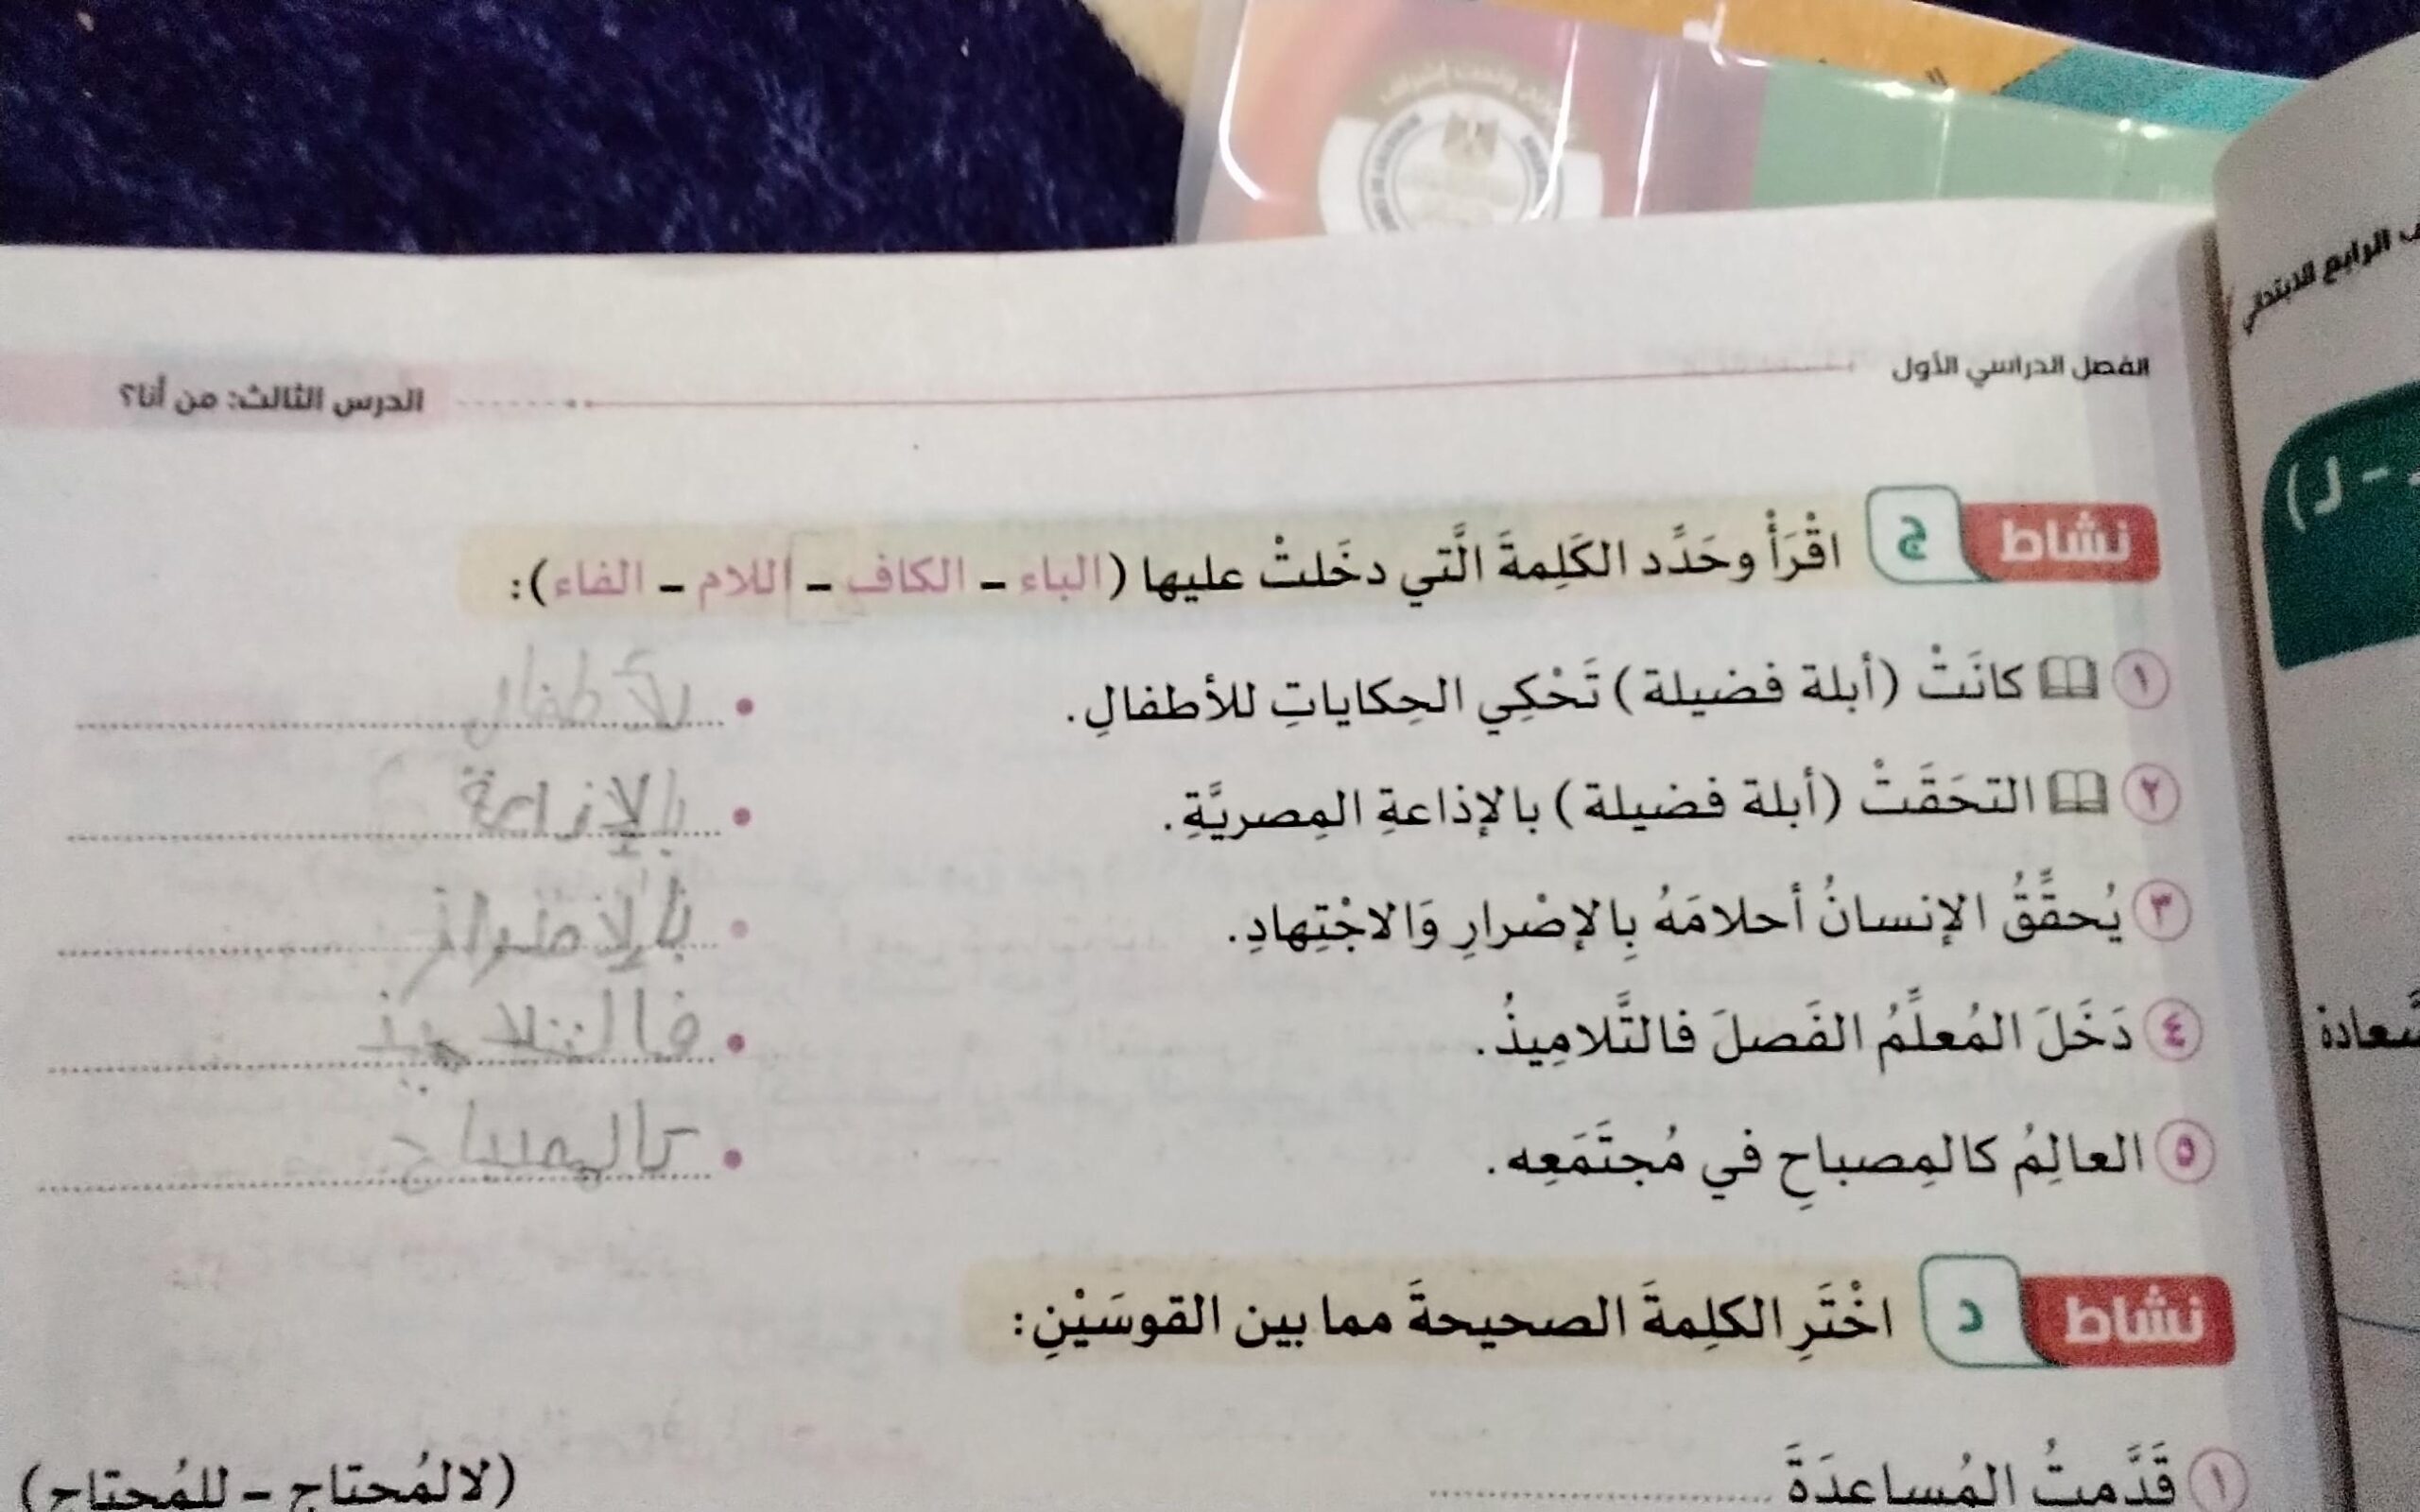 ـف الرابع الابتدائي
الفصل الدراسي الأول
الدرس الثالث: من أنا؟
ـ - لـ)
نشاط ج اقْرَأْ وحَدِّد الكَلِمةَ الَّتي دخَلتْ عليها (الباء - الكاف - اللام - الفاء):
١ كانَتْ (أبلة فضيلة) تَحْكِي الحِكاياتِ للأطفالِ. • لأطفال
٢ التحَقَتْ (أبلة فضيلة) بالإذاعةِ المِصريَّةِ. • بالإذاعة
٣ يُحقِّقُ الإنسانُ أحلامَهُ بِالإصْرارِ وَالاجْتِهادِ. •
٤ دَخَلَ المُعلِّمُ الفَصلَ فالتَّلامِيذُ. • فالتلاميذ
٥ العالِمُ كالمِصباحِ في مُجتَمَعِه. •
ـسَّعادة
نشاط د اخْتَرِ الكلِمةَ الصحيحةَ مما بين القوسَيْنِ:
١ قَدَّمتُ المُساعدَةَ .................... (لالمُحتاج - للمُحتاج)